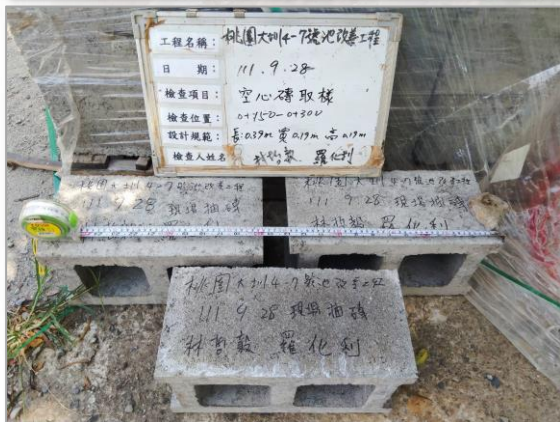 工程名稱： 桃園大圳4-7號池改善工程
日 期： 111.9.28
檢查項目： 空心磚取樣
檢查位置： 0+150-0+300
設計規範： 長:0.39m 寬0.19m 高0.19m
檢查人姓名 林哲毅 羅化利
桃園大圳4-7號池改善工程
111 9 28 現場抽磚
桃園大圳4-7號池改善工程
111 9 28 現場抽磚
林哲毅 羅化利
桃園大圳4-7號池改善工程
111 9 28 現場抽磚
林哲毅 羅化利